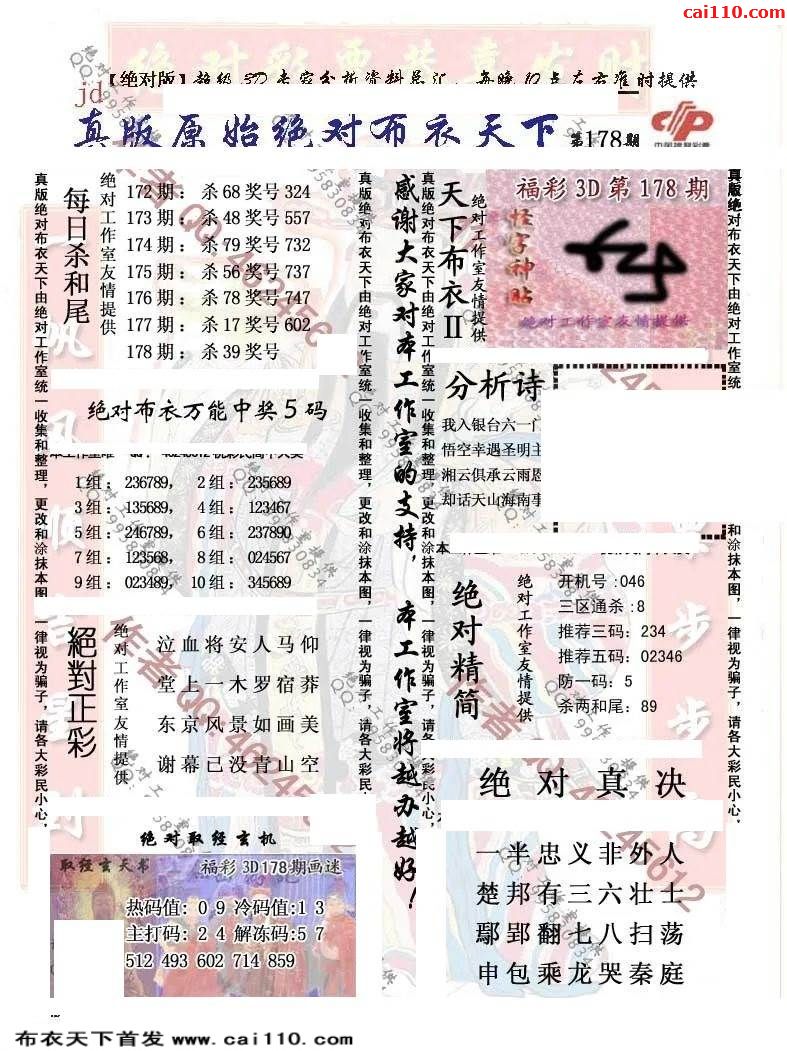 cai110.com
【绝对版】超级3D专家分析资料总汇，每晚10点左右准时提供
jd
真版原始绝对布衣天下 第178期
中国福利彩票
真版绝对布衣天下由绝对工作室统一收集和整理，更改和涂抹本图，一律视为骗子，请各大彩民小心，
每日杀和尾
绝对工作室友情提供
172期：杀68奖号324
173期：杀48奖号557
174期：杀79奖号732
175期：杀56奖号737
176期：杀78奖号747
177期：杀17奖号602
178期：杀39奖号
绝对布衣万能中奖5码
1组：236789，2组：235689
3组：135689，4组：123467
5组：246789，6组：237890
7组：123568，8组：024567
9组：023489，10组：345689
絕對正彩
绝对工作室友情提供
泣血将安人马仰
堂上一木罗宿莽
东京风景如画美
谢幕已没青山空
绝对取经玄机
取经玄天书
福彩3D178期画迷
热码值：09冷码值:13
主打码：24解冻码:57
512 493 602 714 859
真版绝对布衣天下由绝对工作室统一收集和整理，更改和涂抹本图，一律视为骗子，请各大彩民小心，
感谢大家对本工作室的支持，本工作室将越办越好！
真版绝对布衣天下由绝对工作室统一收集和整理，更改和涂抹本图，一律视为骗子，请各大彩民小心，
天下布衣II
绝对工作室友情提供
福彩3D第178期
怪字神贴
绝对工作室友情提供
分析诗
我入银台六一门
悟空幸遇圣明主
湘云俱承云雨恩
却话天山海南事
绝对精简
绝对工作室友情提供
开机号:046
三区通杀:8
推荐三码：234
推荐五码：02346
防一码：5
杀两和尾：89
绝对真决
一半忠义非外人
楚邦有三六壮士
鄢郢翻七八扫荡
申包乘龙哭秦庭
真版绝对布衣天下由绝对工作室统
和涂抹本图，一律视为骗子，请各大彩民小心，
布衣天下首发 www.cai110.com